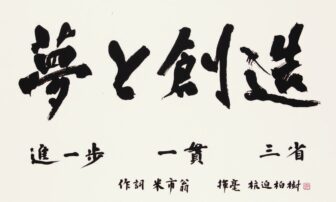 夢と創造
進一歩 一貫 三省
作詞 米市翁 揮毫 杭迫柏樹